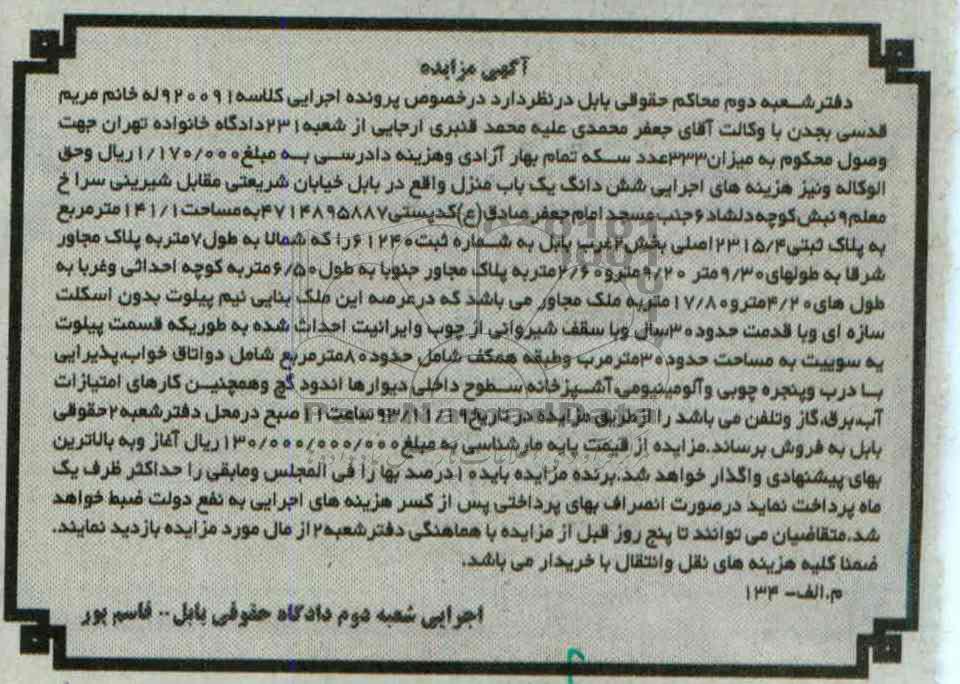 آگهی مزایده
دفترشعبه دوم محاکم حقوقی بابل درنظردارد درخصوص پرونده اجرایی کلاسه۹۲۰۰۹۱له خانم مریم
قدسی بجدن با وکالت آقای جعفر محمدی علیه محمد قنبری ارجایی از شعبه۲۳۱دادگاه خانواده تهران جهت
وصول محکوم به میزان۳۳۳عدد سکه تمام بهار آزادی وهزینه دادرسی به مبلغ۱/۱۷۰/۰۰۰ریال وحق
الوکاله ونیز هزینه های اجرایی شش دانگ یک باب منزل واقع در بابل خیابان شریعتی مقابل شیرینی سرا خ
معلم۹نبش کوچه دلشاد۶جنب مسجد امام جعفر صادق(ع)کدپستی۴۷۱۴۸۹۵۸۸۷به مساحت۱۴۱/۱مترمربع
به پلاک ثبتی۲۳۱۵/۴اصلی بخش۲غرب بابل به شماره ثبت۶۱۲۴۰را که شمالا به طول۷متربه پلاک مجاور
شرقا به طولهای۹/۳۰متر ۹/۲۰مترو۲/۶۰متربه پلاک مجاور جنوبا به طول۶/۵۰متربه کوچه احداثی وغربا به
طول های۴/۲۰مترو۱۷/۸۰متربه ملک مجاور می باشد که درعرصه این ملک بنایی نیم پیلوت بدون اسکلت
سازه ای وبا قدمت حدود۳۰سال وبا سقف شیروانی از چوب وایرانیت احداث شده به طوریکه قسمت پیلوت
به سوییت به مساحت حدود۳۰مترمرب وطبقه همکف شامل حدود۸۰مترمربع شامل دواتاق خواب،پذیرایی
با درب وپنجره چوبی وآلومینیومی،آشپزخانه سطوح داخلی دیوارها اندود گچ وهمچنین کارهای امتیازات
آب،برق،گاز وتلفن می باشد را ازطریق مزایده در تاریخ۹۳/۱۱/۱۹ساعت۱۱صبح درمحل دفترشعبه۲حقوقی
بابل به فروش برساند.مزایده از قیمت پایه کارشناسی به مبلغ۱۳۰/۰۰۰/۰۰۰/۰۰۰ریال آغاز وبه بالاترین
بهای پیشنهادی واگذار خواهد شد.برنده مزایده باید۱۰درصد بها را فی المجلس ومابقی را حداکثر ظرف یک
ماه پرداخت نماید درصورت انصراف بهای پرداختی پس از کسر هزینه های اجرایی به نفع دولت ضبط خواهد
شد.متقاضیان می توانند تا پنج روز قبل از مزایده با هماهنگی دفترشعبه۲از مال مورد مزایده بازدید نمایند.
ضمنا کلیه هزینه های نقل وانتقال با خریدار می باشد.
م.الف- ۱۳۴
اجرایی شعبه دوم دادگاه حقوقی بابل-- قاسم پور